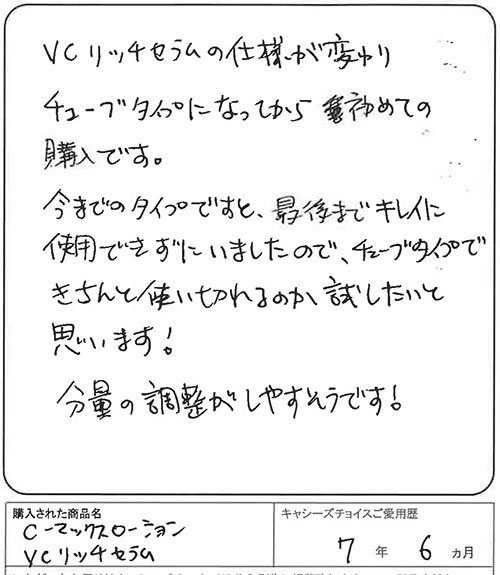 VCリッチセラムの仕様が変わり
チューブタイプになってから初めての
購入です。
今までのタイプですと、最後までキレイに
使用できずにいましたので、チューブタイプで
きちんと使い切れるのか試したいと
思います!
分量の調整がしやすそうです!
購入された商品名
C-マックスローション
VCリッチセラム
キャシーズチョイスご愛用歴
7年6ヵ月